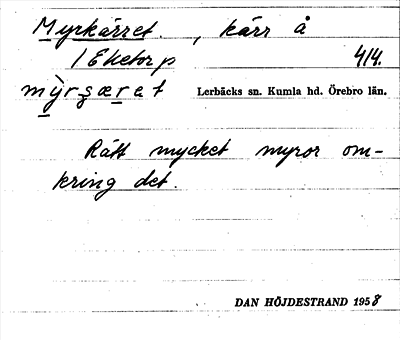 Myrkärret, kärr å
1 Eketorp 414.
mỳrʒærat Lerbäcks sn. Kumla hd. Örebro län.
Rätt mycket myror om-
kring det.
DAN HÖJDESTRAND 1958